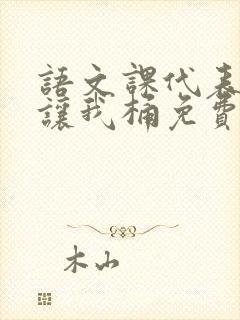 語文課代表
讓我桶免費
木山